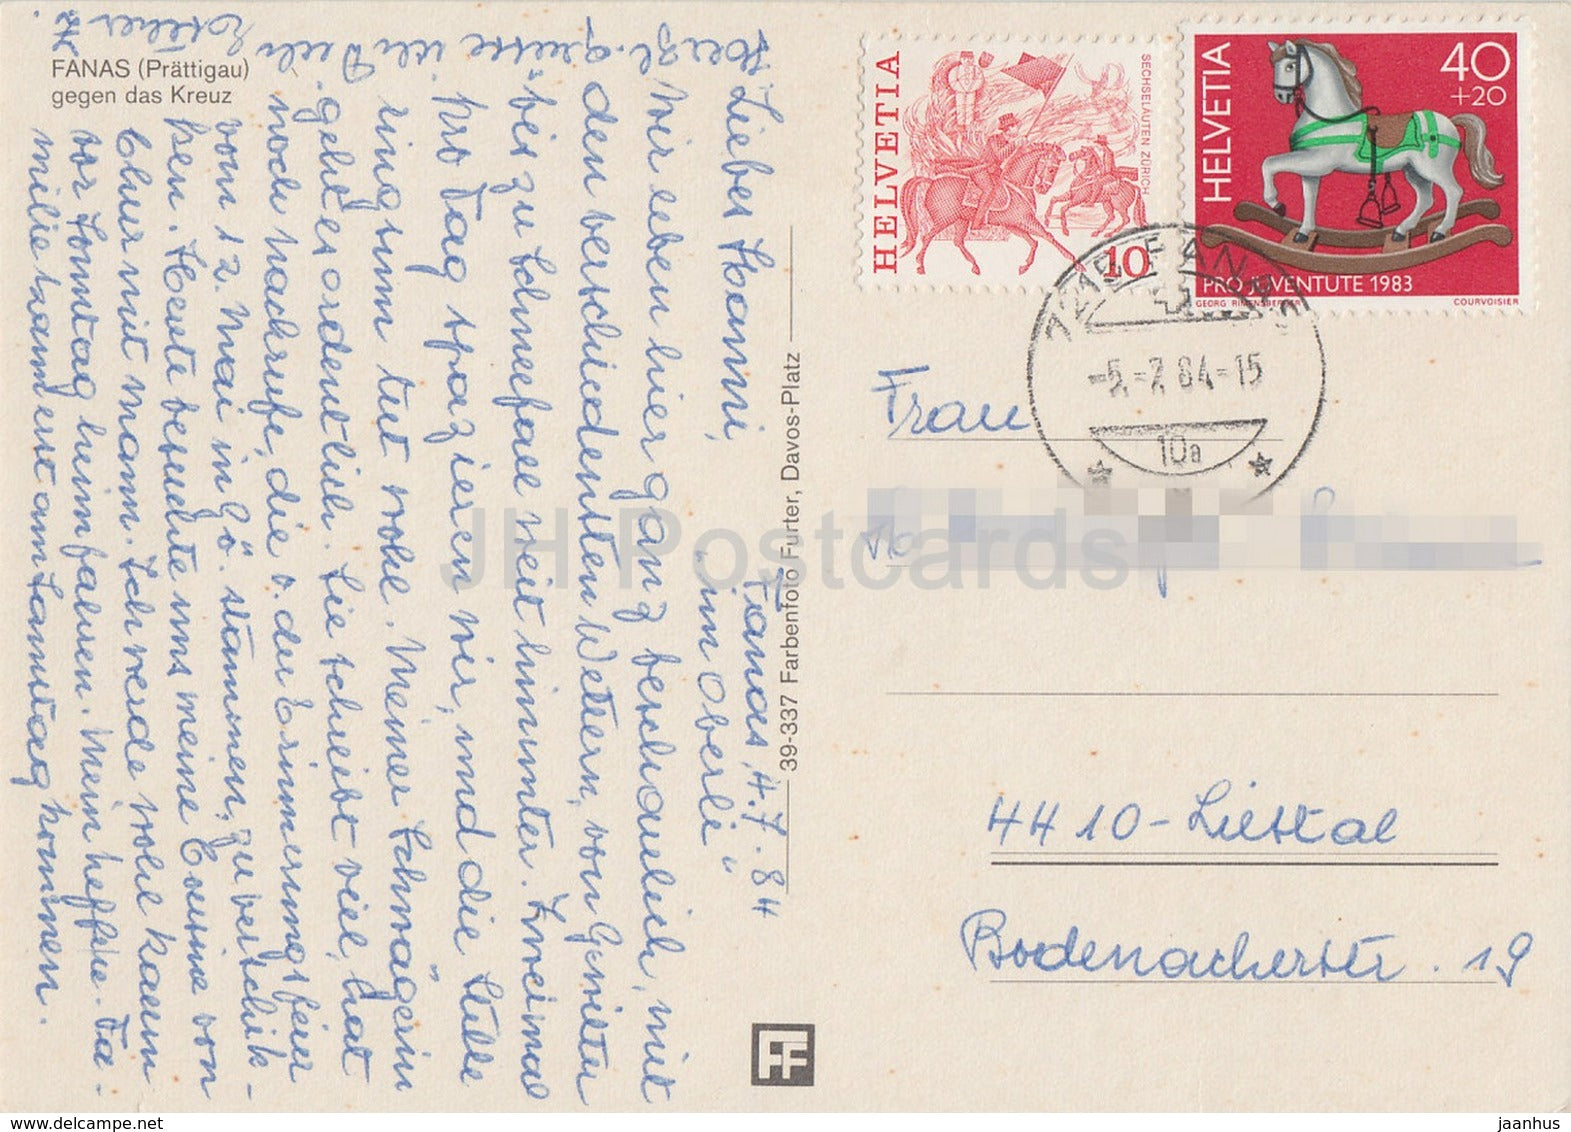 FANAS (Prättigau)
gegen das Kreuz
Fanas, 4.7.84
"im Oberli"
Liebes Hanni,
Wir leben hier ganz beschaulich, mit
den verschiedensten Wettern, von Gewitter
bis zu Schneefall weit hinunter. Zweimal
pro Tag spazieren wir, und die Stille
ringsum tut wohl. Meiner Schwägerin
geht es ordentlich. Sie schreibt viel, hat
noch Nachrufe, die v. der Erinnerungsfeier
vom 12. Mai in Gö. stammen, zu verschik-
ken. Heute besuchte uns meine Cousine von
Chur mit Mann. Ich werde wohl kaum
vor Sonntag heimfahren. Mein Neffe-Fa-
milie kam erst am Samstag kommen.
Herzl. grüsse ich Dich
39-337 Farbenfoto Furter, Davos-Platz
FF
HELVETIA
SECHSELÄUTEN ZÜRICH
10
HELVETIA
40
+20
PRO JUVENTUTE 1983
GEORG RIMENSBERGER
COURVOISIER
7215 FANAS
-5.-7.84-15
10a
Frau
4410-Liestal
Bodenacherstr. 19
JH Postcards
hippostcard.com
jaanhus